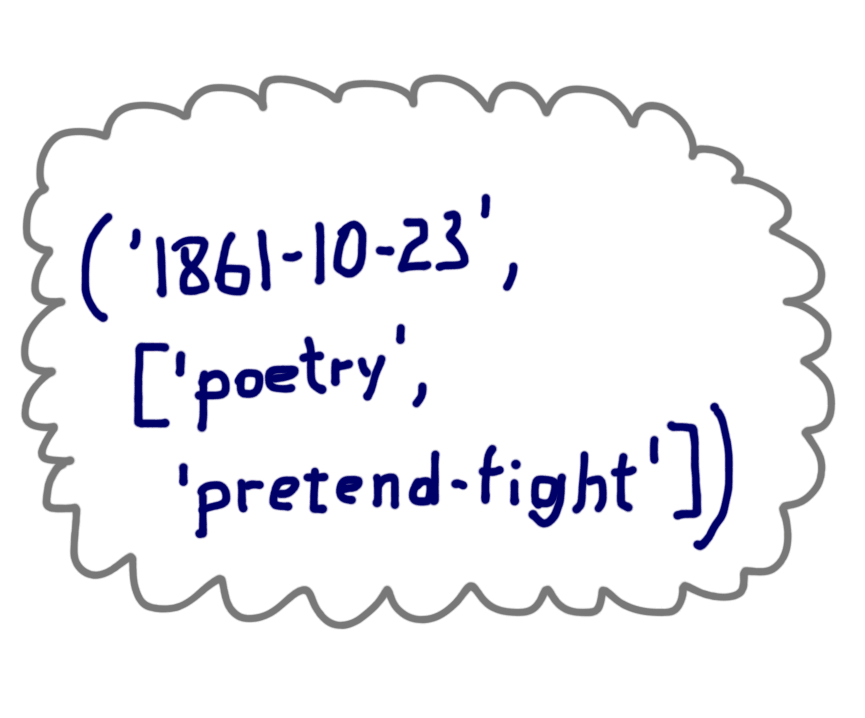 ('1861-10-23',
['poetry',
'pretend-fight'])